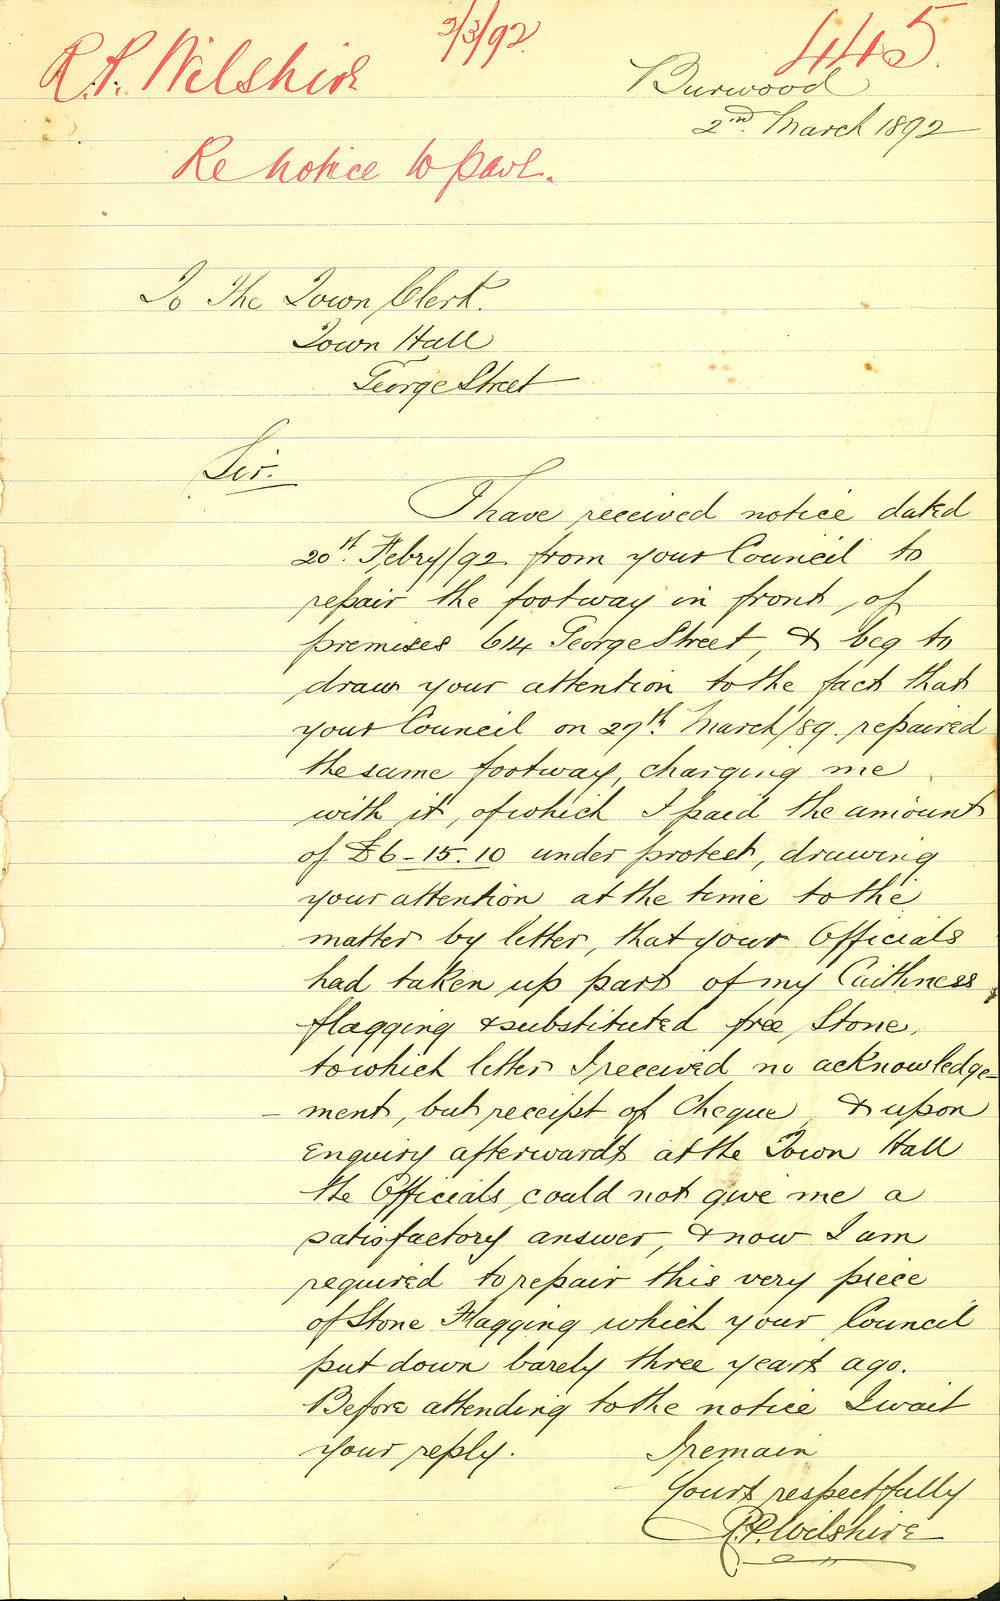 2/3/92. 445.
R. P. Wilshire
Burwood
2nd. March 1892
Re Notice to pave.
To The Town Clerk.
Town Hall
George Street
Sir.
I have received notice dated
20th. Febry/92. from your Council to
repair the footway in front of
premises 614 George Street, & beg to
draw your attention to the fact that
your Council on 27th. March/89. repaired
the same footway, charging me
with it, of which I paid the amount
of £6-15.10 under protest, drawing
your attention at the time to the
matter by letter, that your Officials
had taken up part of my Caithness
flagging & substituted free Stone,
to which letter I received no acknowledge=
-ment, but receipt of Cheque, & upon
enquiry afterwards at the Town Hall
the Officials could not give me a
satisfactory answer, & now I am
required to repair this very piece
of Stone Flagging which your Council
put down barely three years ago.
Before attending to the notice I wait
your reply. I remain
Yours respectfully
R.P. Wilshire